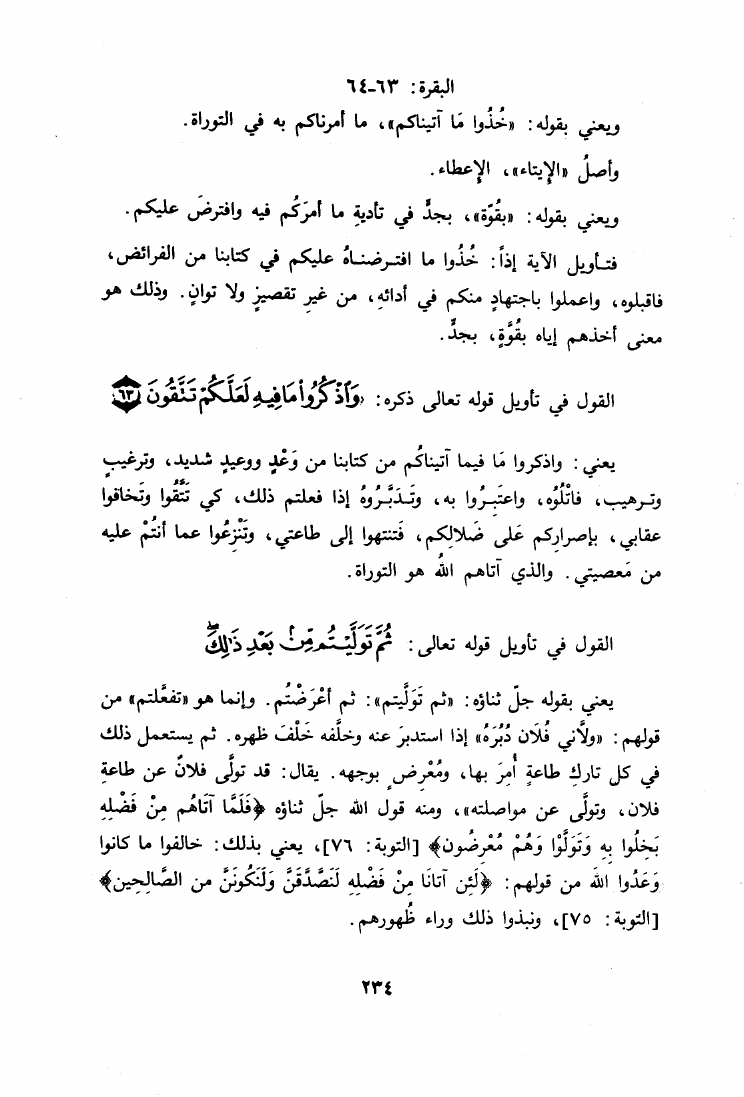 البقرة: ٦٣-٦٤
ويعني بقوله: «خُذُوا مَا آتيناكم»، ما أمرناكم به في التوراة.
وأصلُ «الإِيتاء»، الإِعطاء.
ويعني بقوله: «بقُوّة»، بجدٍّ في تأديةِ ما أمرَكُم فيه وافترضَ عليكم.
فتـأويل الآية إذاً: خُذُوا ما افتـرضنـاهُ عليكم في كتابنا من الفرائض،
فاقبلوه، واعملوا باجتهادٍ منكم في أدائهِ، من غيرِ تقصيرٍ ولا توانٍ. وذلك هو
معنى أخذهم إياه بقُوَّةٍ، بجدٍّ.
القول في تأويل قوله تعالى ذكره: وَٱذْكُرُوا۟ مَا فِيهِ لَعَلَّكُمْ تَتَّقُونَ ٦٣
يعني: واذكروا مَا فيما آتيناكُم من كتابنا من وَعْدٍ ووعيدٍ شديد، وترغيبٍ
وتـرهيب، فاتْلُوُه، واعتَبِـرُوا به، وتَـدَبَّـرُوهُ إذا فعلتم ذلك، كي تَتَّقُوا وتَخافوا
عقابي، بإصراركم عَلى ضَلالِكم، فَتنتهوا إلى طاعتي، وتَنْزِعُوا عما أنتُمْ عليه
من مَعصيتي. والذي آتاهم اللهُ هو التوراة.
القول في تأويل قوله تعالى: ثُمَّ تَوَلَّيْتُم مِّنۢ بَعْدِ ذَٰلِكَ ۖ
يعني بقوله جلّ ثناؤه: «ثم تَوَلَّيتم»: ثم أعْرَضْتُم. وإنما هو «تفعَّلتم» من
قولهم: «ولَّاني فُلَان دُبُرَهُ» إذا استدبرَ عنه وخلَّفه خَلْفَ ظهره. ثم يستعمل ذلك
في كل تاركِ طاعةٍ أُمِرَ بها، ومُعْرِضٍ بوجهه. يقال: قد تولَّى فلانٌ عن طاعةِ
فلان، وتولَّى عن مواصلته»، ومنه قول الله جلّ ثناؤه ﴿فَلَمَّا آتَاهُم مِنْ فَضْلِهِ
بَخِلُوا بِهِ وَتَوَلَّوْا وَهُمْ مُعْرِضُون﴾ [التوبة: ٧٦]، يعني بذلك: خالفوا ما كانوا
وَعَدُوا اللهَ من قولهم: ﴿لَئِن آتَانَا مِنْ فَضْلِهِ لَنَصَّدَّقَنَّ وَلَنَكُونَنَّ من الصَّالِحِين﴾
[التوبة: ٧٥]، ونبذوا ذلك وراء ظُهورهم.
٢٣٤